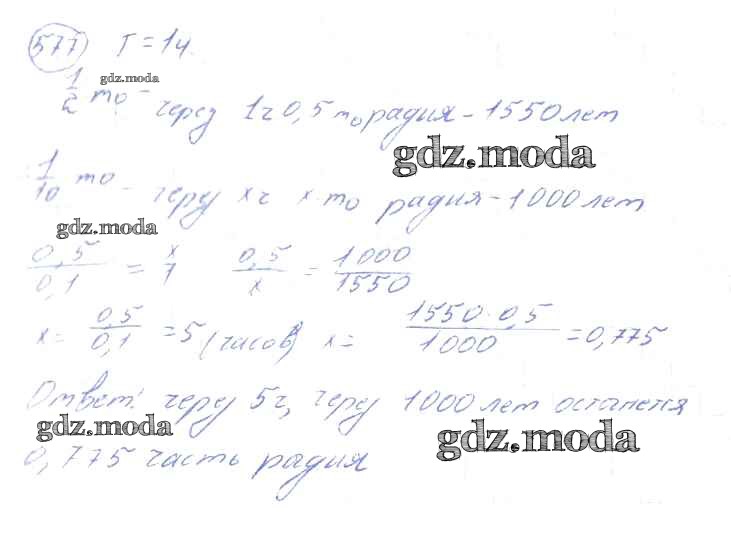 577 T = 1ч.
gdz.moda
1/2 m₀ - через 1ч 0,5 m₀ радия - 1550 лет
gdz.moda
1/10 m₀ - через x ч x m₀ радия - 1000 лет
gdz.moda
0,5/0,1 = x/1 0,5/x = 1000/1550
x = 0,5/0,1 = 5 (часов) x = 1550·0,5/1000 = 0,775
Ответ: через 5ч, через 1000 лет останется
gdz.moda gdz.moda
0,775 часть радия